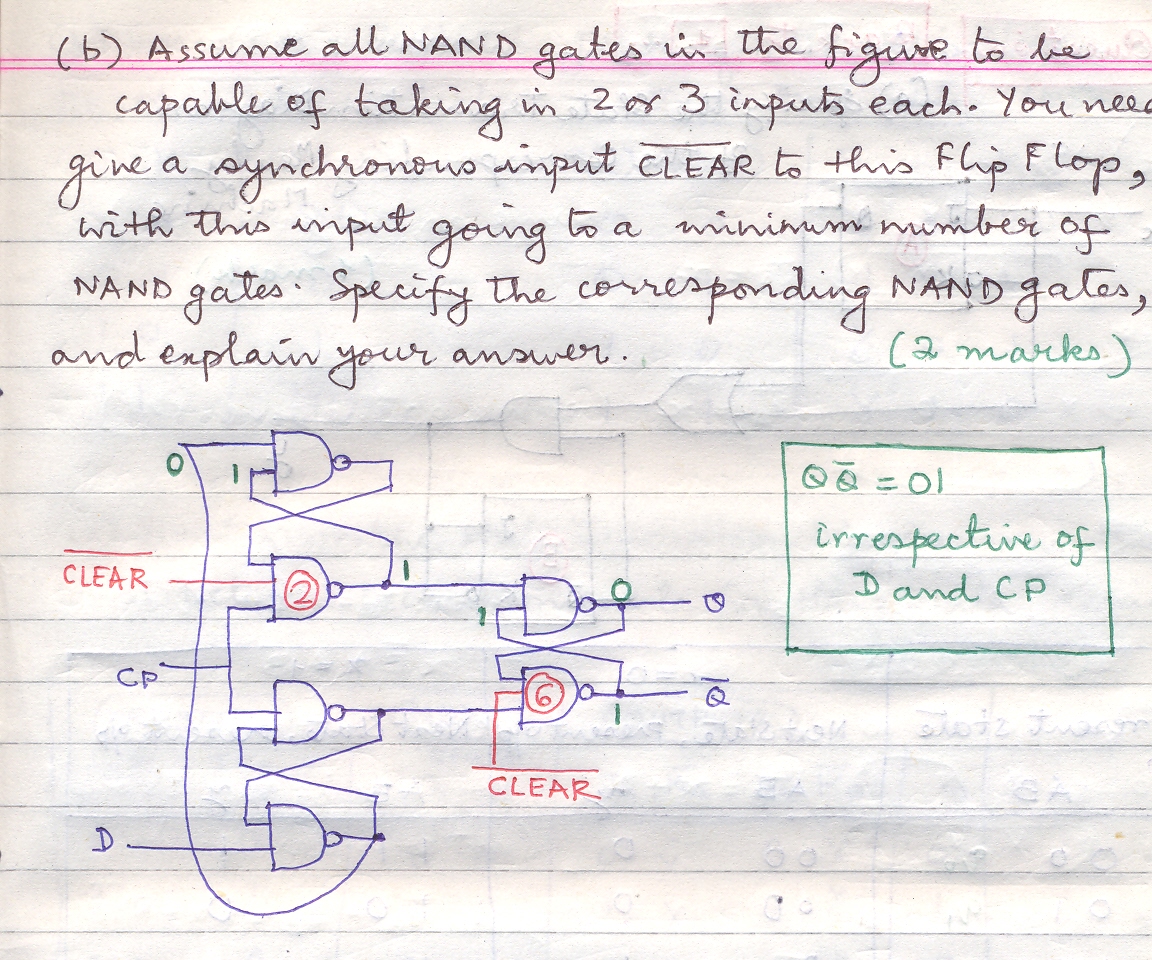 (b) Assume all NAND gates in the figure to be
capable of taking in 2 or 3 inputs each. You need
give a synchronous input C̅L̅E̅A̅R̅ to this Flip Flop,
with this input going to a minimum number of
NAND gates. Specify the corresponding NAND gates,
and explain your answer. (2 marks)
0
1
C̅L̅E̅A̅R̅
2
1
1
0
Q
CP
6
Q̅
1
C̅L̅E̅A̅R̅
D
QQ̅ = 01
irrespective of
D and CP